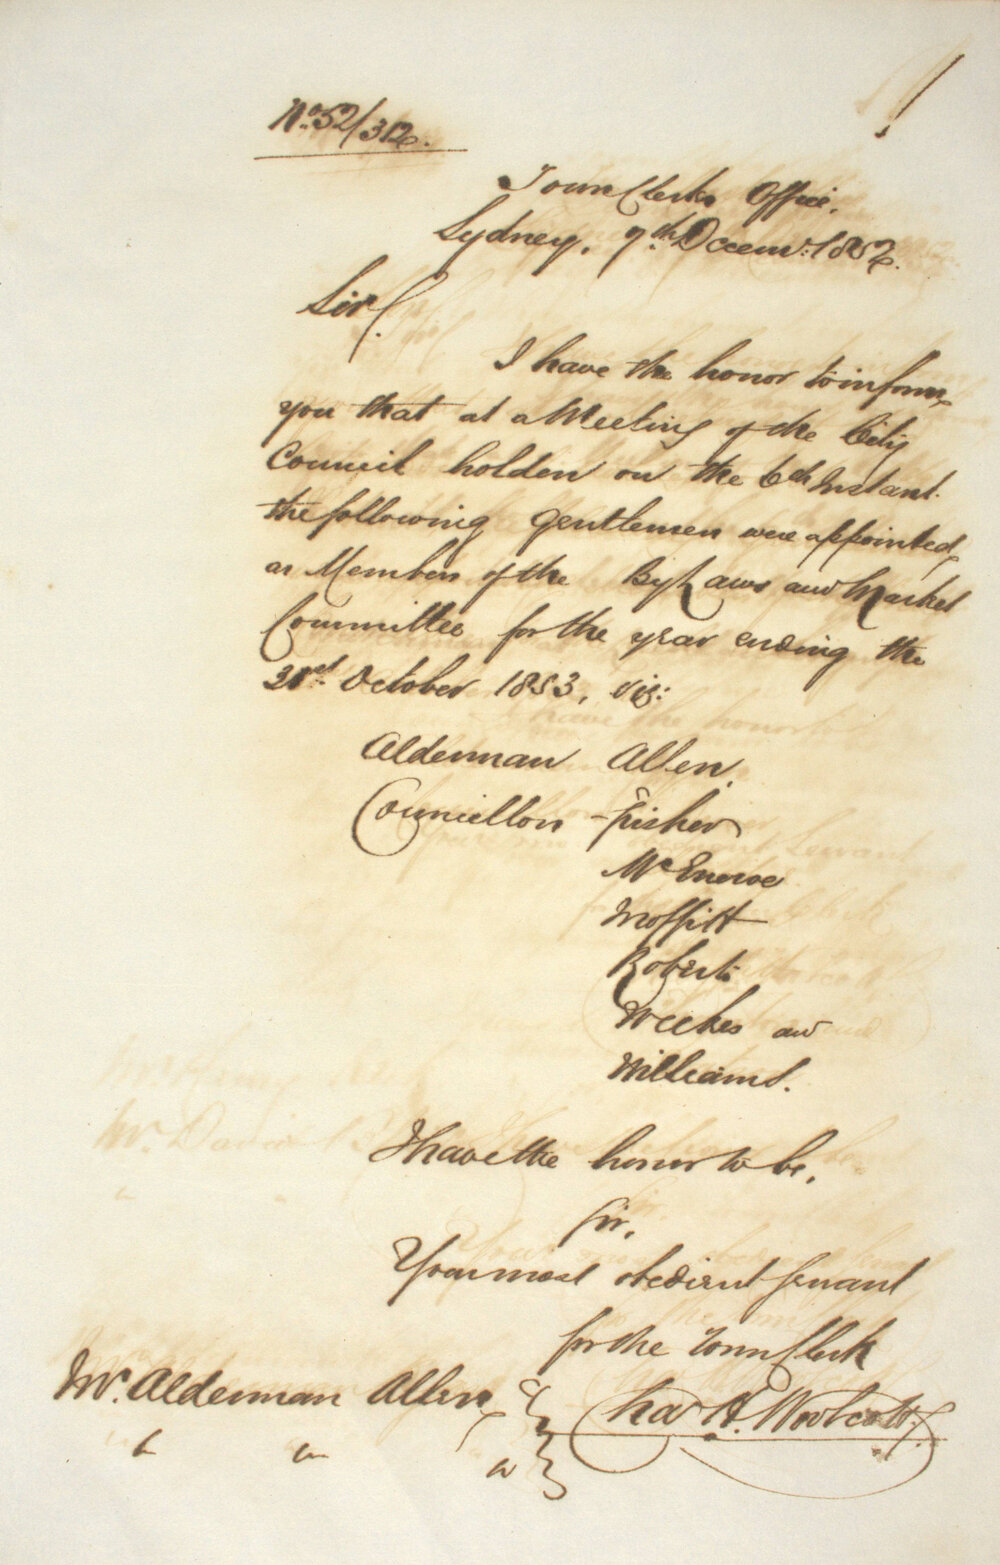 No. 52/382.
Town Clerks Office,
Sydney, 7th Decemr: 1852.
Sir,
I have the honor to inform
you that at a Meeting of the City
Council holden on the 6th Instant
the following Gentlemen were appointed
as Members of the By Laws and Market
Committee for the year ending the
31st October 1853, viz:
Alderman Allen.
Councillors Fisher
McEnroe
Moffitt
Roberts
Weekes and
Williams.
I have the honor to be,
Sir,
Your most obedient Servant
for the Town Clerk
Chas H. Woolcott.
Mr. Alderman Allen
" " "